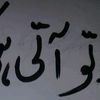 تو آتی ہ